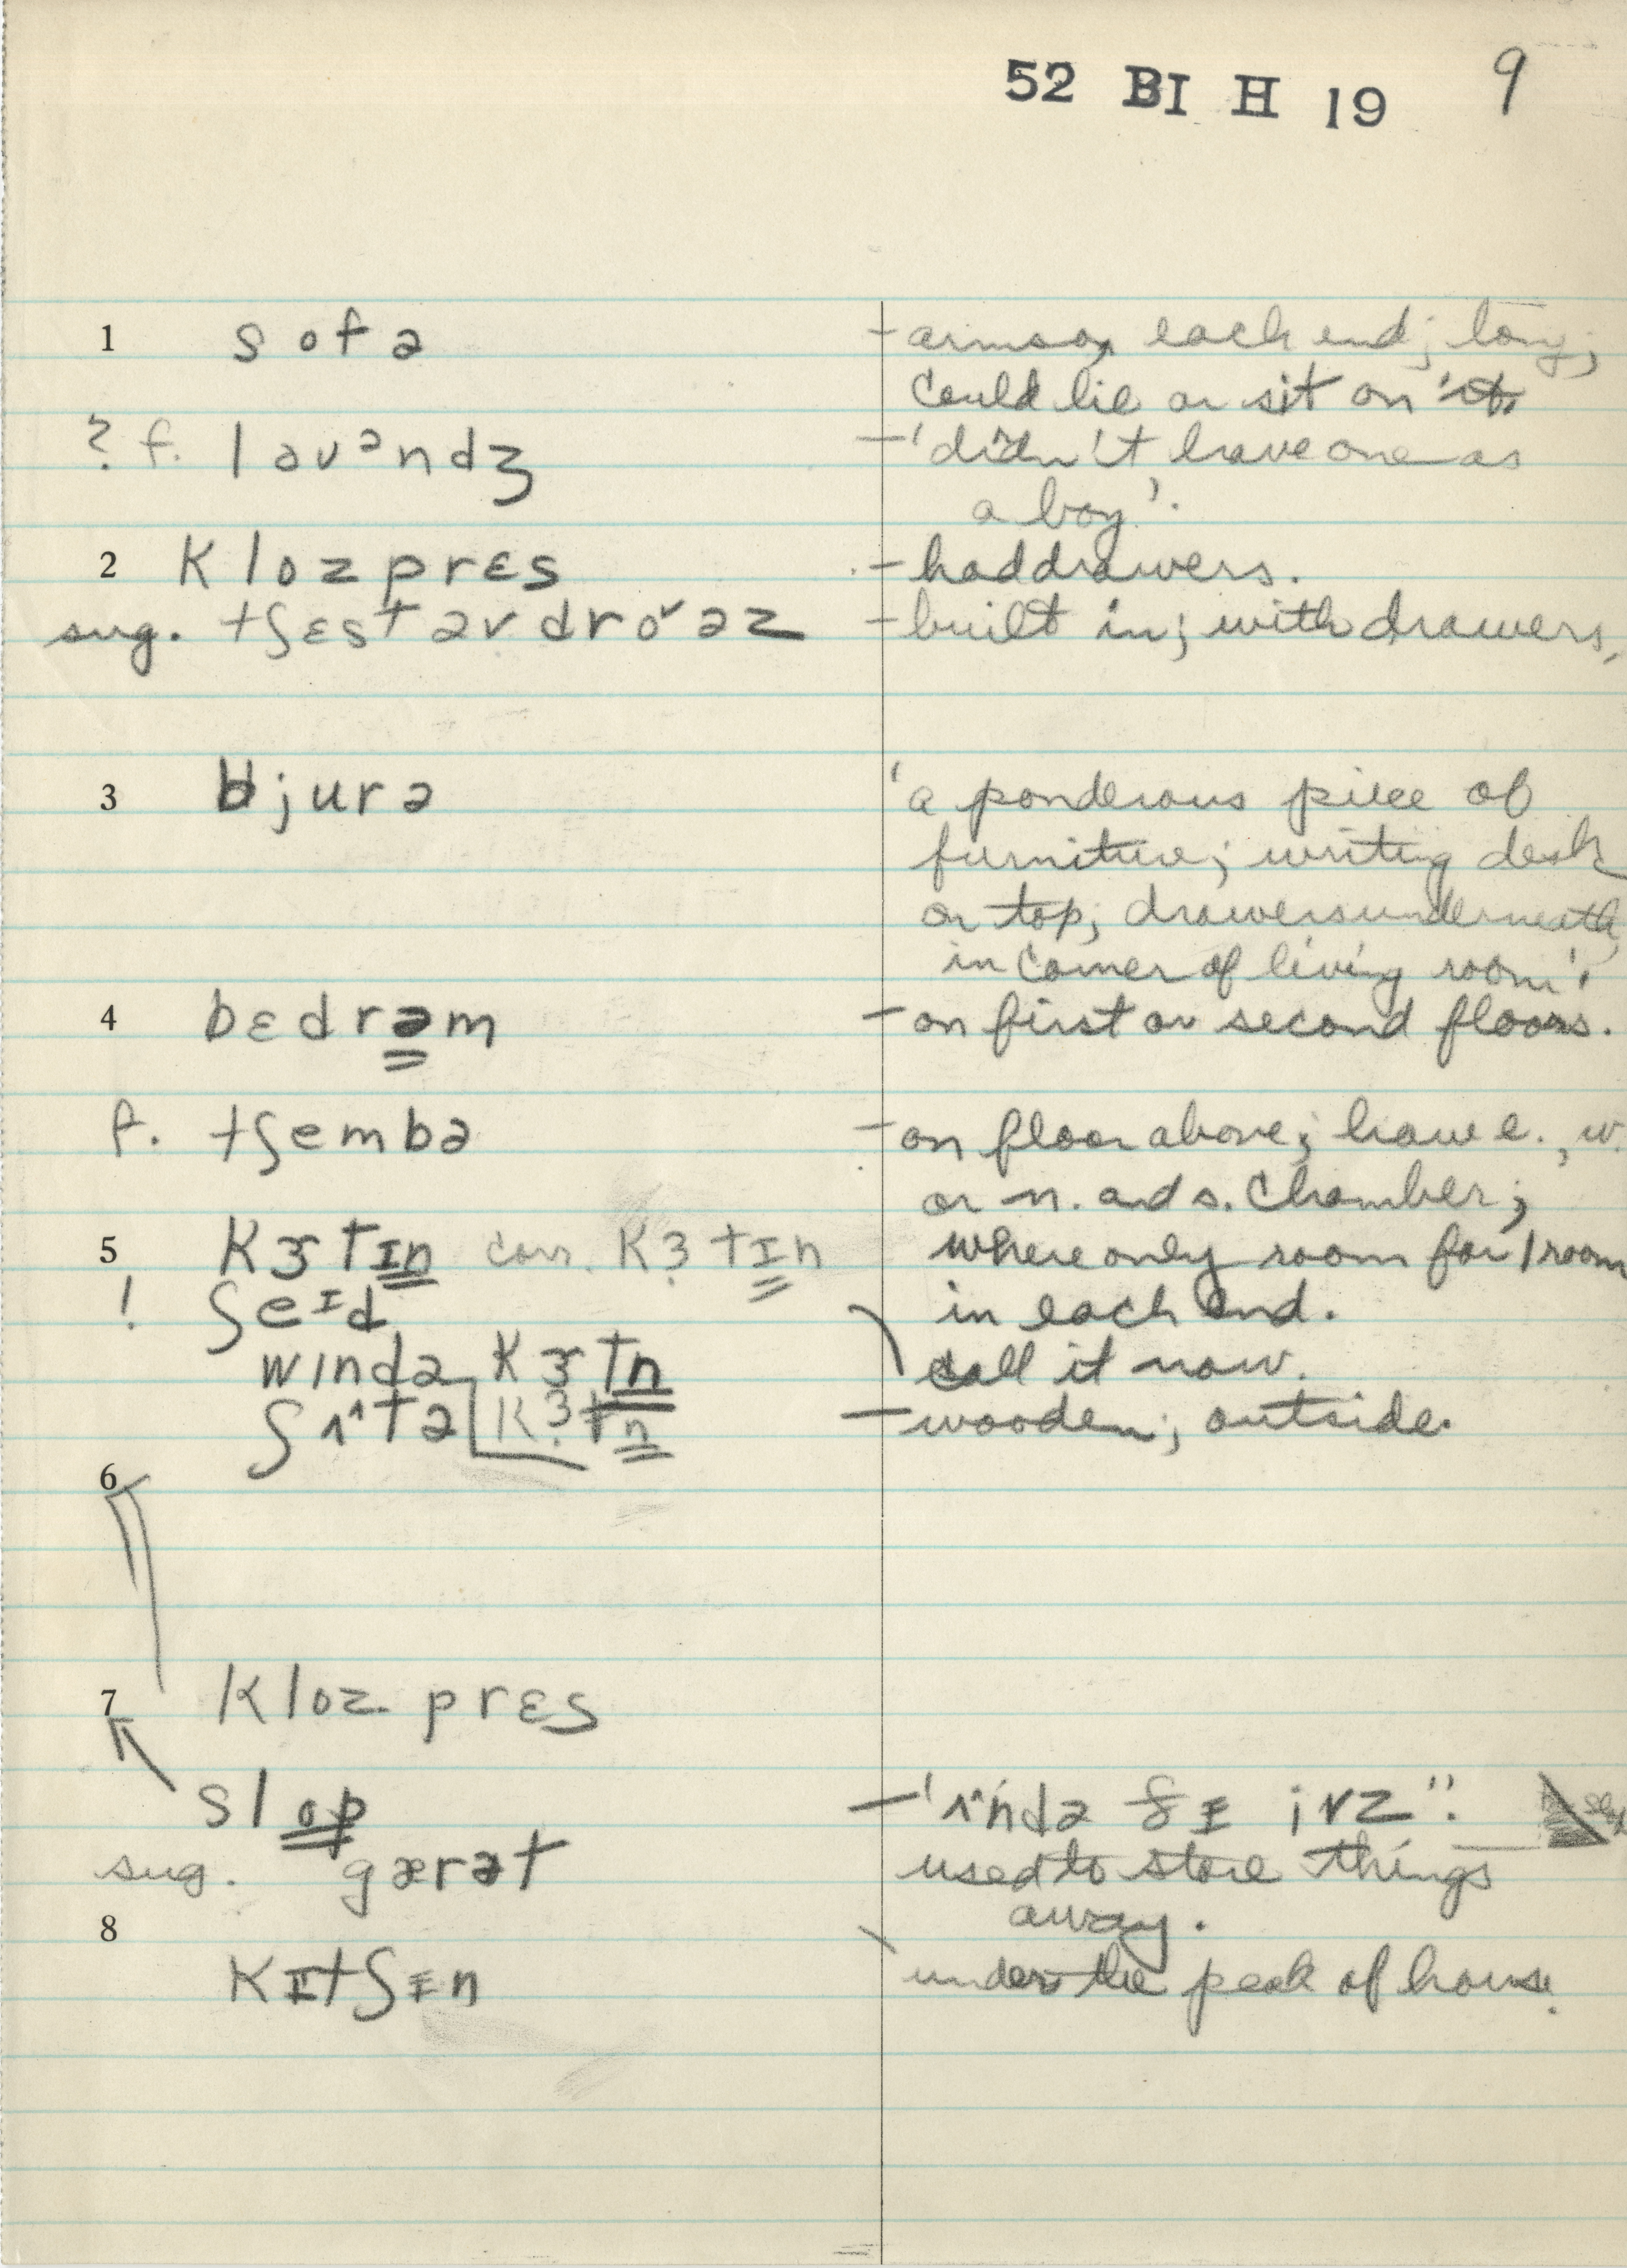 52 BI H 19 9
1 sofə - arms on each end; long;
could lie or sit on it.
? f. lavᵊndʒ - 'didn't have one as
a boy'.
2 klozprɛs - had drawers.
sug. tʃɛst əv drɔˇəz - built in; with drawers,
3 bjurə 'a ponderous piece of
furniture; writing desk
on top; drawers underneath
in corner of living room'.
4 bɛdrəm - on first or second floors.
f. tʃembə - on floor above; have e., w.
or n. and s. chamber;
5 kɝtɪn corr. kɜtɪn where only room for 1 room
! ʃeɪd in each end.
wɪndə kɝtn call it now.
ʃʌtə kɜtn - wooden; outside.
6
7 kloz prɛs
slop - 'ʌndə ðɪ ivz".
sug. gærət used to store things
away.
8
kɪtʃɪn under the peak of house.